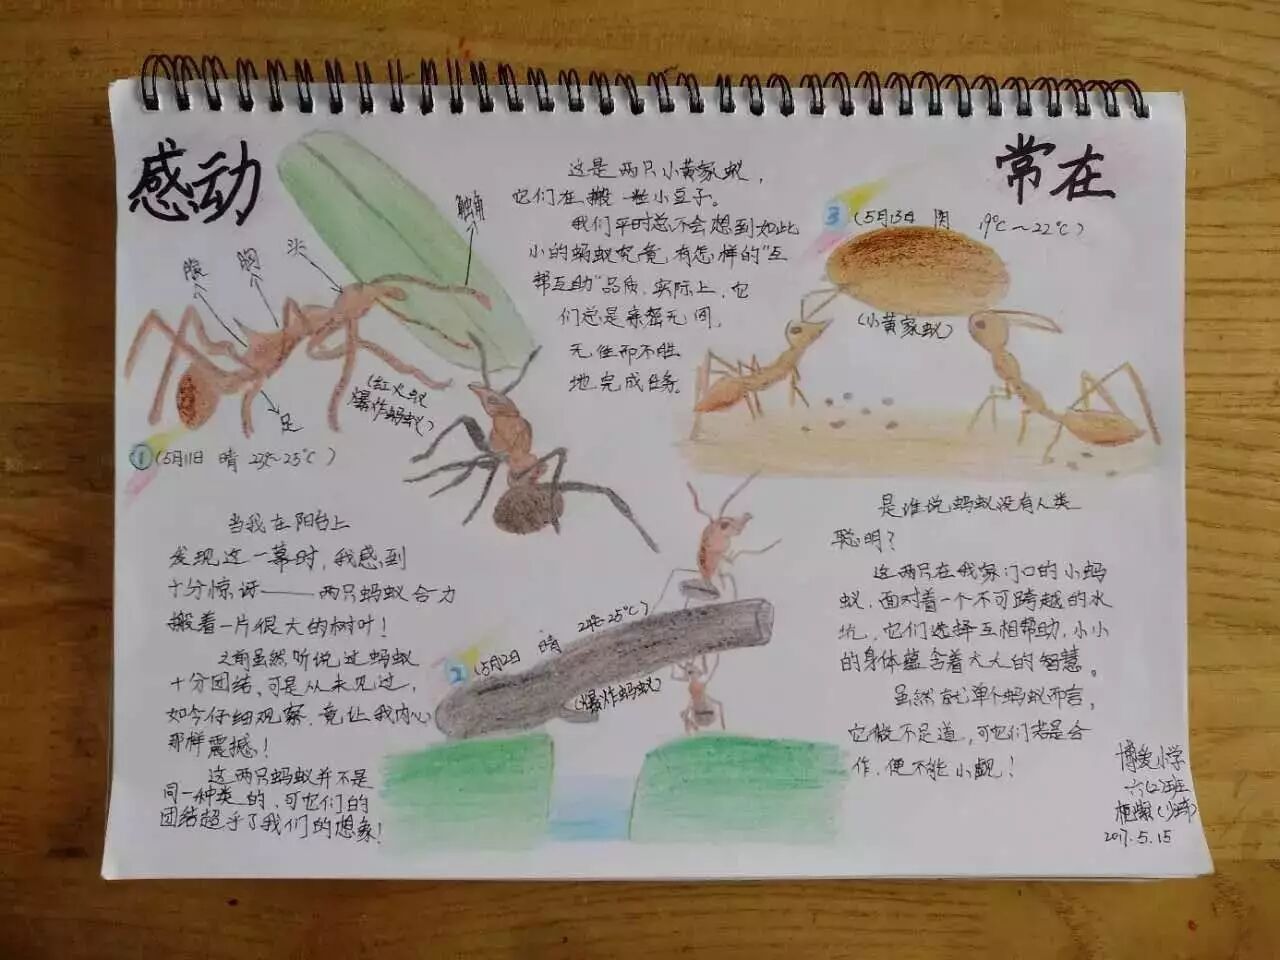 感动
常在
触角
头
胸
腹
足
(红火蚁
爆炸蚂蚁)
① (5月11日 晴 23℃~25℃)
当我在阳台上
发现这一幕时，我感到
十分惊讶——两只蚂蚁合力
搬着一片很大的树叶！
之前虽然听说过蚂蚁
十分团结，可是从未见过，
如今仔细观察，竟让我内心
那样震撼！
这两只蚂蚁并不是
同一种类的，可它们的
团结超乎了我们的想象！
这是两只小黄家蚁，
它们在搬一粒小豆子。
我们平时总不会想到如此
小的蚂蚁究竟有怎样的“互
帮互助”品质，实际上，它
们总是亲密无间，
无往而不胜
地完成任务。
3 (5月13日 阴 19℃~22℃)
(小黄家蚁)
2 (5月12日 晴 24℃~25℃)
(爆炸蚂蚁)
是谁说蚂蚁没有人类
聪明？
这两只在我家门口的小蚂
蚁，面对着一个不可跨越的水
坑，它们选择互相帮助，小小
的身体蕴含着大大的智慧。
虽然就单个蚂蚁而言，
它微不足道，可它们若是合
作，便不能小觑！
博爱小学
六(2)班
2017.5.15